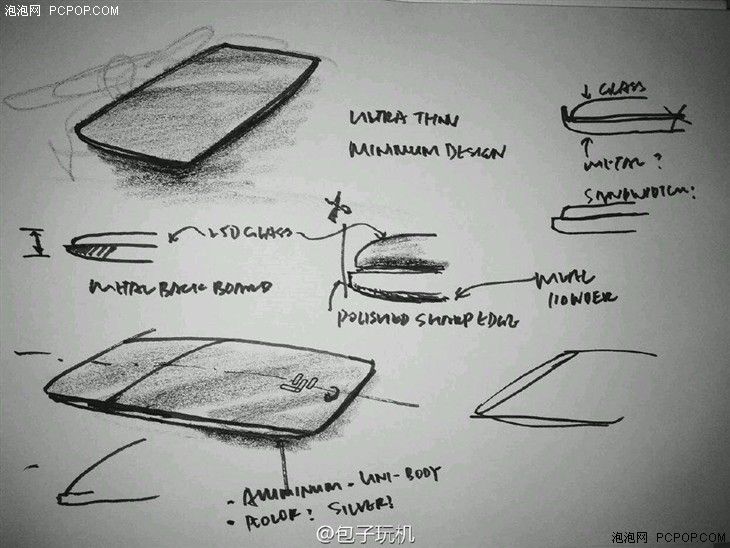 泡泡网 PCPOP.COM
泡泡网 PCPOP.COM
ULTRA THIN
MINIMUM DESIGN
GLASS
METAL?
SANDWICH?
2.5D GLASS
METAL BACK BOARD
POLISHED SHARP EDGE
METAL
POWDER
- ALUMINUM - UNI-BODY
- COLOR? SILVER?
@包子玩机
泡泡网 PCPOP.COM